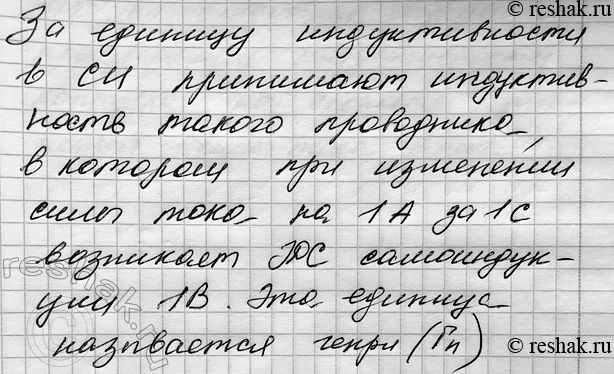 © reshak.ru
За единицу индуктивности
в СИ принимают индуктив-
ность такого проводника,
в котором при изменении
силы тока на 1А за 1С
возникает ЭДС самоиндук-
ции 1В. Эта единица
называется генри (Гн)
© reshak.ru